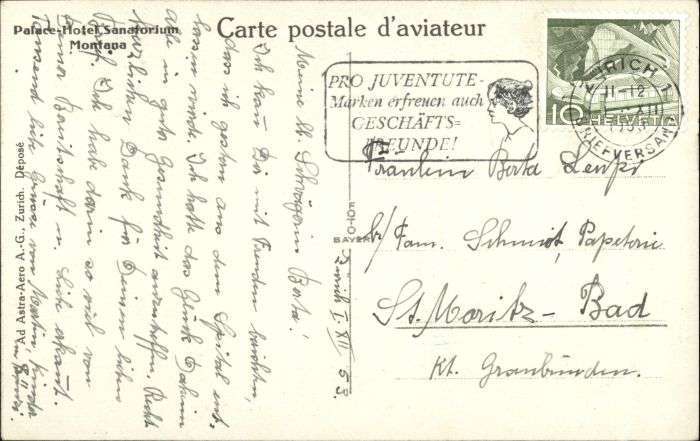 Palace-Hotel Sanatorium
Montana
Carte postale d'aviateur
PRO JUVENTUTE-
Marken erfreuen auch
GESCHÄFTS=
FREUNDE!
ZÜRICH 1
11-12
BRIEFVERSAND
10 HELVETIA
Fräulein Berta
b/ Fam. Schmidt, Papeterie
St. Moritz - Bad
Kt. Graubünden.
FOTO
BAYER
Zürich 1. XII 53.
Meine lb. Schwägerin Berta!
Ich kann Dir mit Freuden berichten,
dass ich gestern aus dem Spital ent-
lassen wurde. Ich hatte das Glück Daheim
alle in guter Gesundheit anzutreffen. Recht
herzlichen Dank für Deinen lieben
Brief. Ich habe darin so viel von
Deiner Bereitschaft u. Liebe erkannt.
Tausend liebe Grüsse von Martin, Kinder
Ad Astra-Aero A.-G., Zurich. Déposé